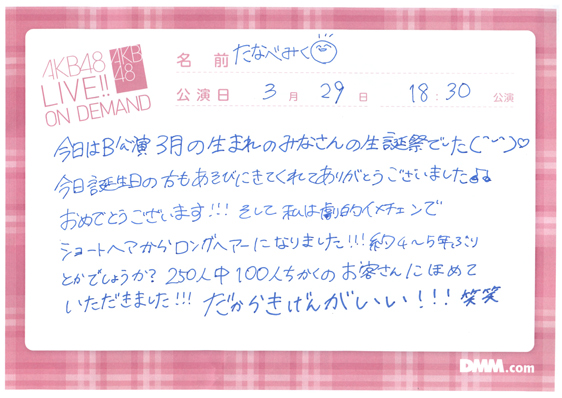 AKB48
LIVE!!
ON DEMAND
AKB
48
名 前 たなべみく
公演日 3月 29日 18:30 公演
今日はB公演3月の生まれのみなさんの生誕祭でした(˘︶˘)♡
今日誕生日の方もあそびにきてくれてありがとうございました♫
おめでとうございます!!! そして私は劇的イメチェンで
ショートヘアからロングヘアーになりました!!! 約4〜5年ぶり
とかでしょうか? 250人中100人ちかくのお客さんにほめて
いただきました!!! だからきげんがいい!!! 笑笑
DMM.com